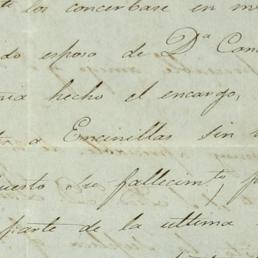 los concertase en m
do esposo de D.ª Can
hecho el encargo,
a Encinillas sin
uesto su fallecim.to, p
parte de la ultima